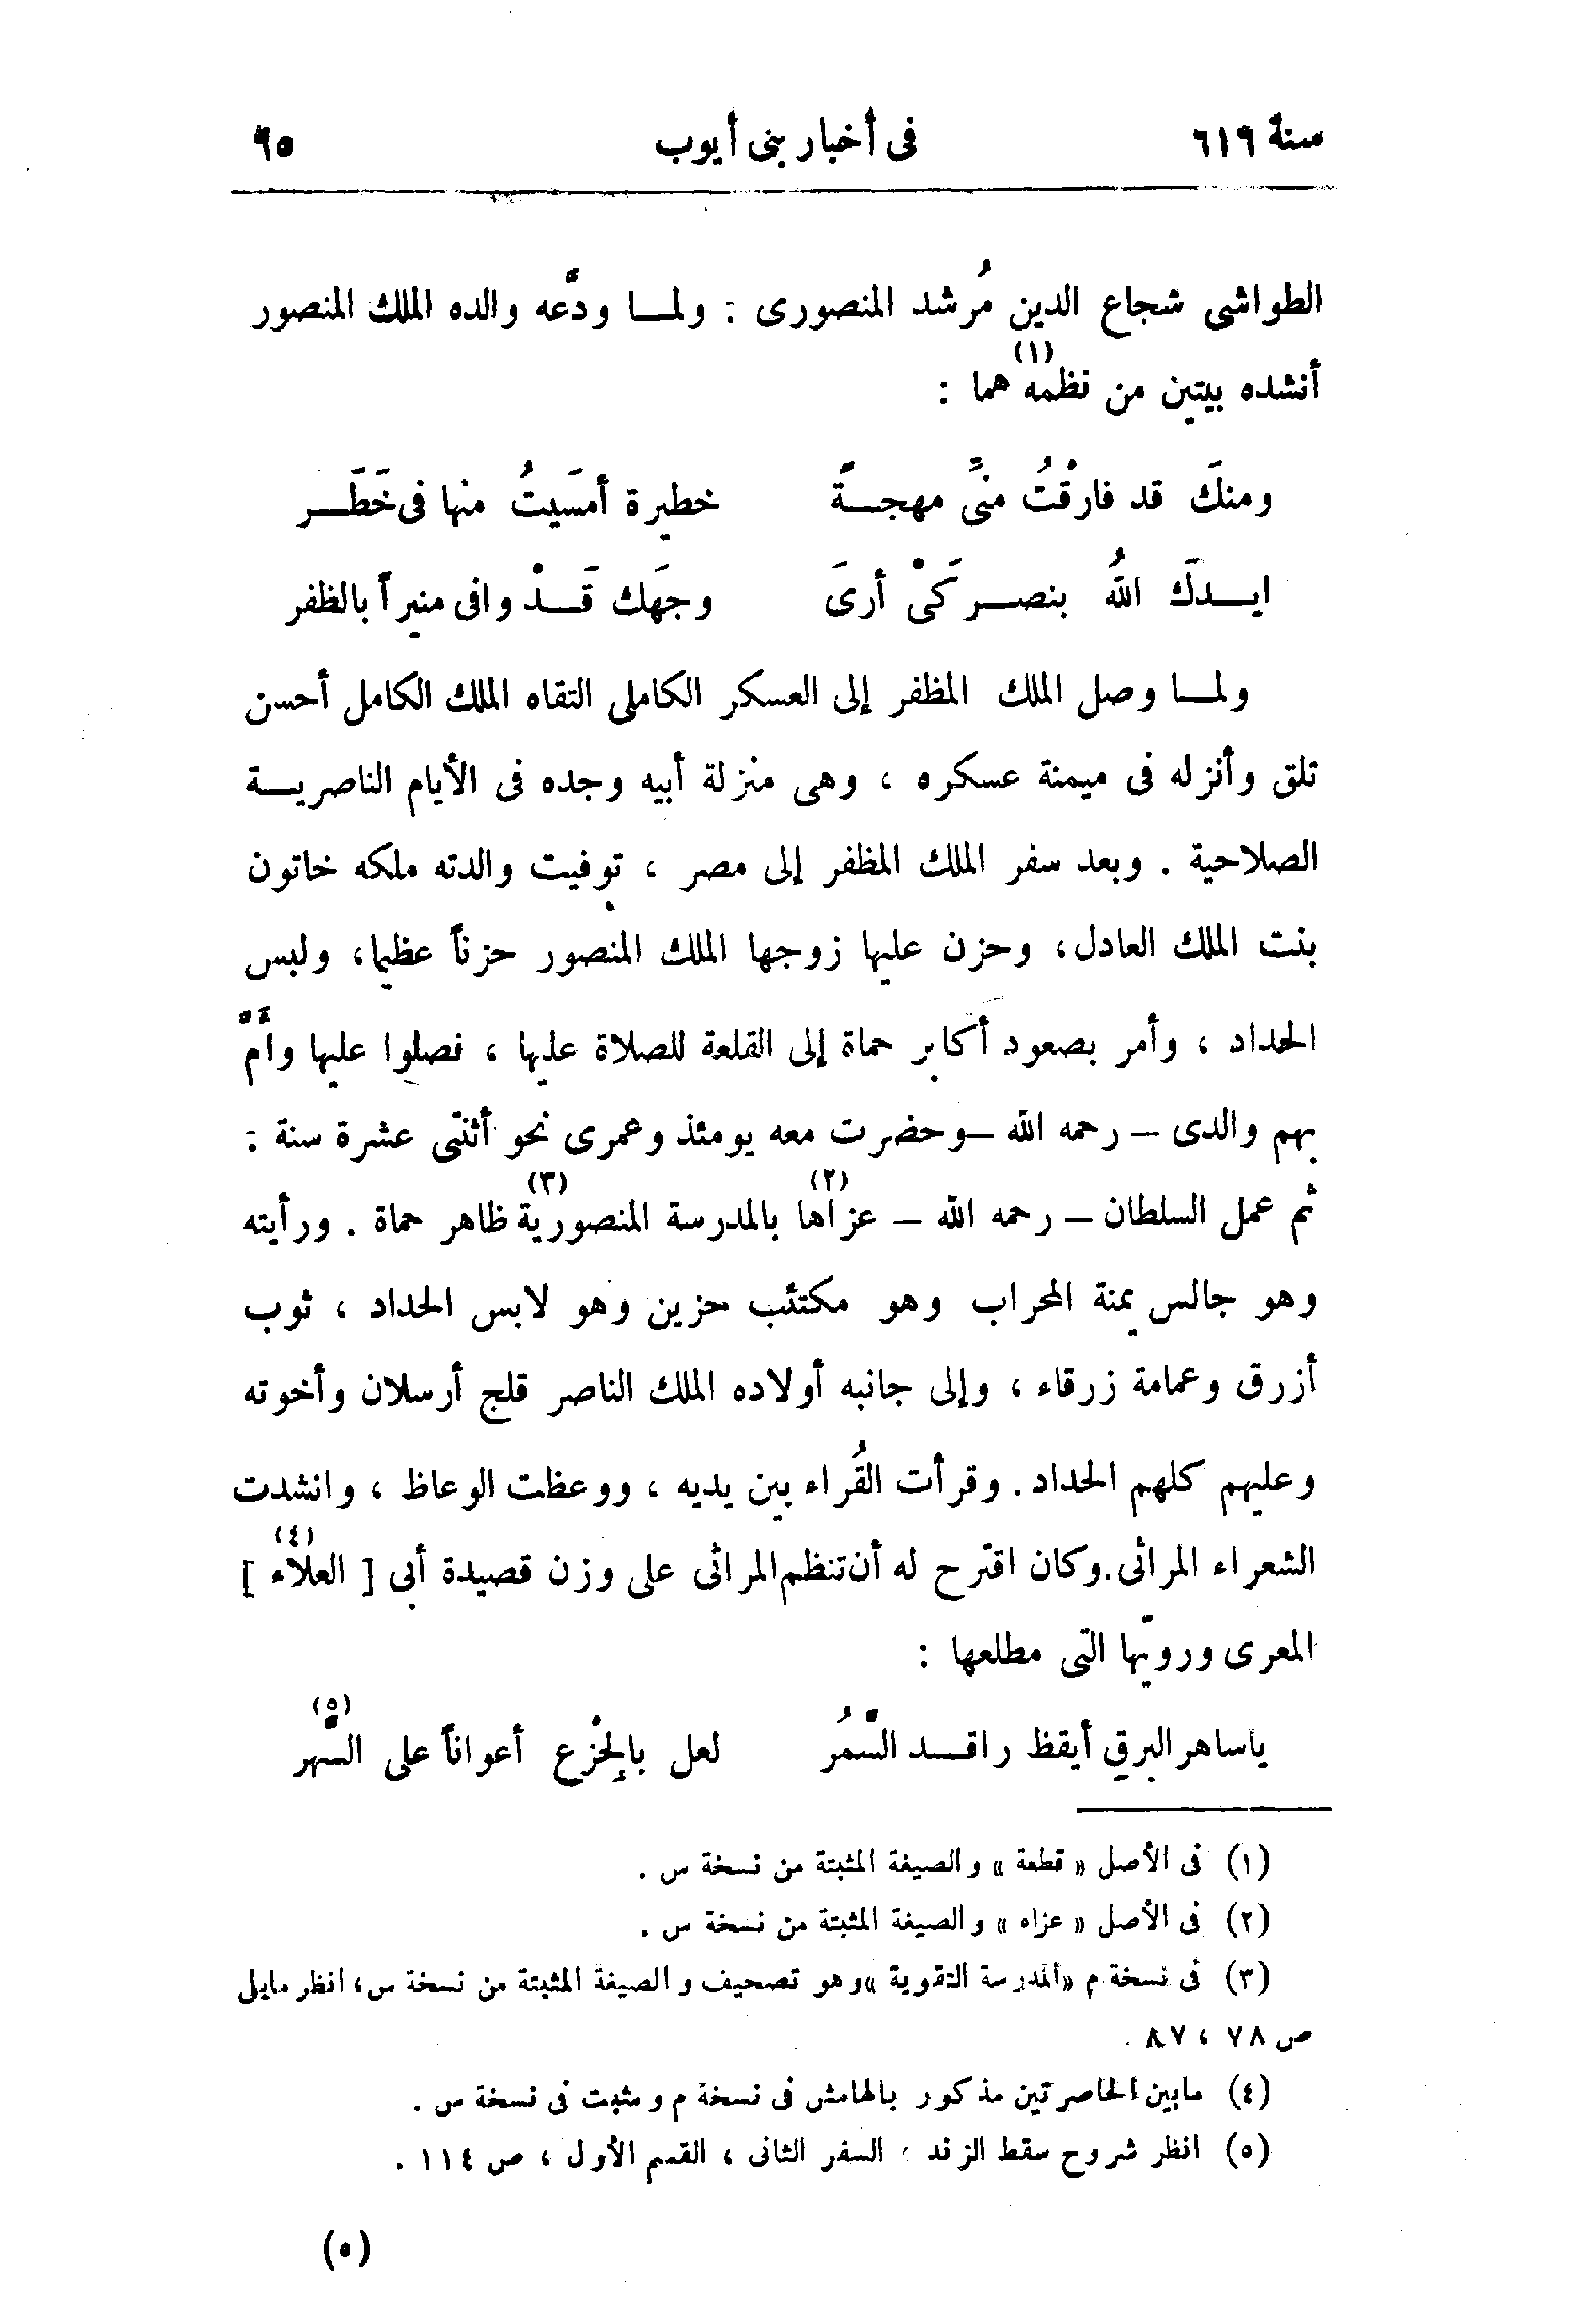 سنة ٦١٩ فى أخبار بنى أيوب ٩٥
الطواشى شجاع الدين مُرشد المنصورى : ولمـــا ودَّعه والده الملك المنصور
أنشده بيتين من نظمه (١) هما :
ومنكَ قد فارقْتُ منىِّ مهجـــةً خطيرة أمسَيتُ منها فى خَطَـــر
ايـــدكَ اللهُ بنصـــر كَىْ أرىَ وجهَك قَـــدْ وافى منيراً بالظفر
ولمـــا وصل الملك المظفر إلى العسكر الكاملى التقاه الملك الكامل أحسن
تلق وأنزله فى ميمنة عسكره ، وهى منزلة أبيه وجده فى الأيام الناصريـــة
الصلاحية . وبعد سفر الملك المظفر إلى مصر ، توفيت والدته ملكه خاتون
بنت الملك العادل ، وحزن عليها زوجها الملك المنصور حزناً عظيما ، ولبس
الحداد ، وأمر بصعود أكابر حماة إلى القلعة للصلاة عليها ، فصلوا عليها وأمَّ
بهم والدى – رحمه الله – وحضرت معه يومئذ وعمرى نحو أثنتى عشرة سنة :
ثم عمل السلطان – رحمه الله – عزاها (٢) بالمدرسة المنصورية (٣) ظاهر حماة . ورأيته
وهو جالس يمنة المحراب وهو مكتئب حزين وهو لابس الحداد ، ثوب
أزرق وعمامة زرقاء ، وإلى جانبه أولاده الملك الناصر قلج أرسلان وأخوته
وعليهم كلهم الحداد . وقرأت القُراء بين يديه ، ووعظت الوعاظ ، وانشدت
الشعراء المراثى . وكان اقترح له أن تنظم المراثى على وزن قصيدة أبى [ العلاء (٤) ]
المعرى ورويّها التى مطلعها :
ياساهر البرق أيقظ راقـــد السَّمُر لعل بالِجزْع أعواناً على السَّهر (٥)
(١) فى الأصل « قطعة » والصيغة المثبتة من نسخة س .
(٢) فى الأصل « عزاه » والصيغة المثبتة من نسخة س .
(٣) فى نسخة م «المدرسة التقوية» وهو تصحيف والصيغة المثبتة من نسخة س ، انظر مايلى
ص ٧٨ ، ٨٧ .
(٤) مابين الحاصرتين مذكور بالهامش فى نسخة م ومثبت فى نسخة س .
(٥) انظر شروح سقط الزند ، السفر الثانى ، القسم الأول ، ص ١١٤ .
(٥)